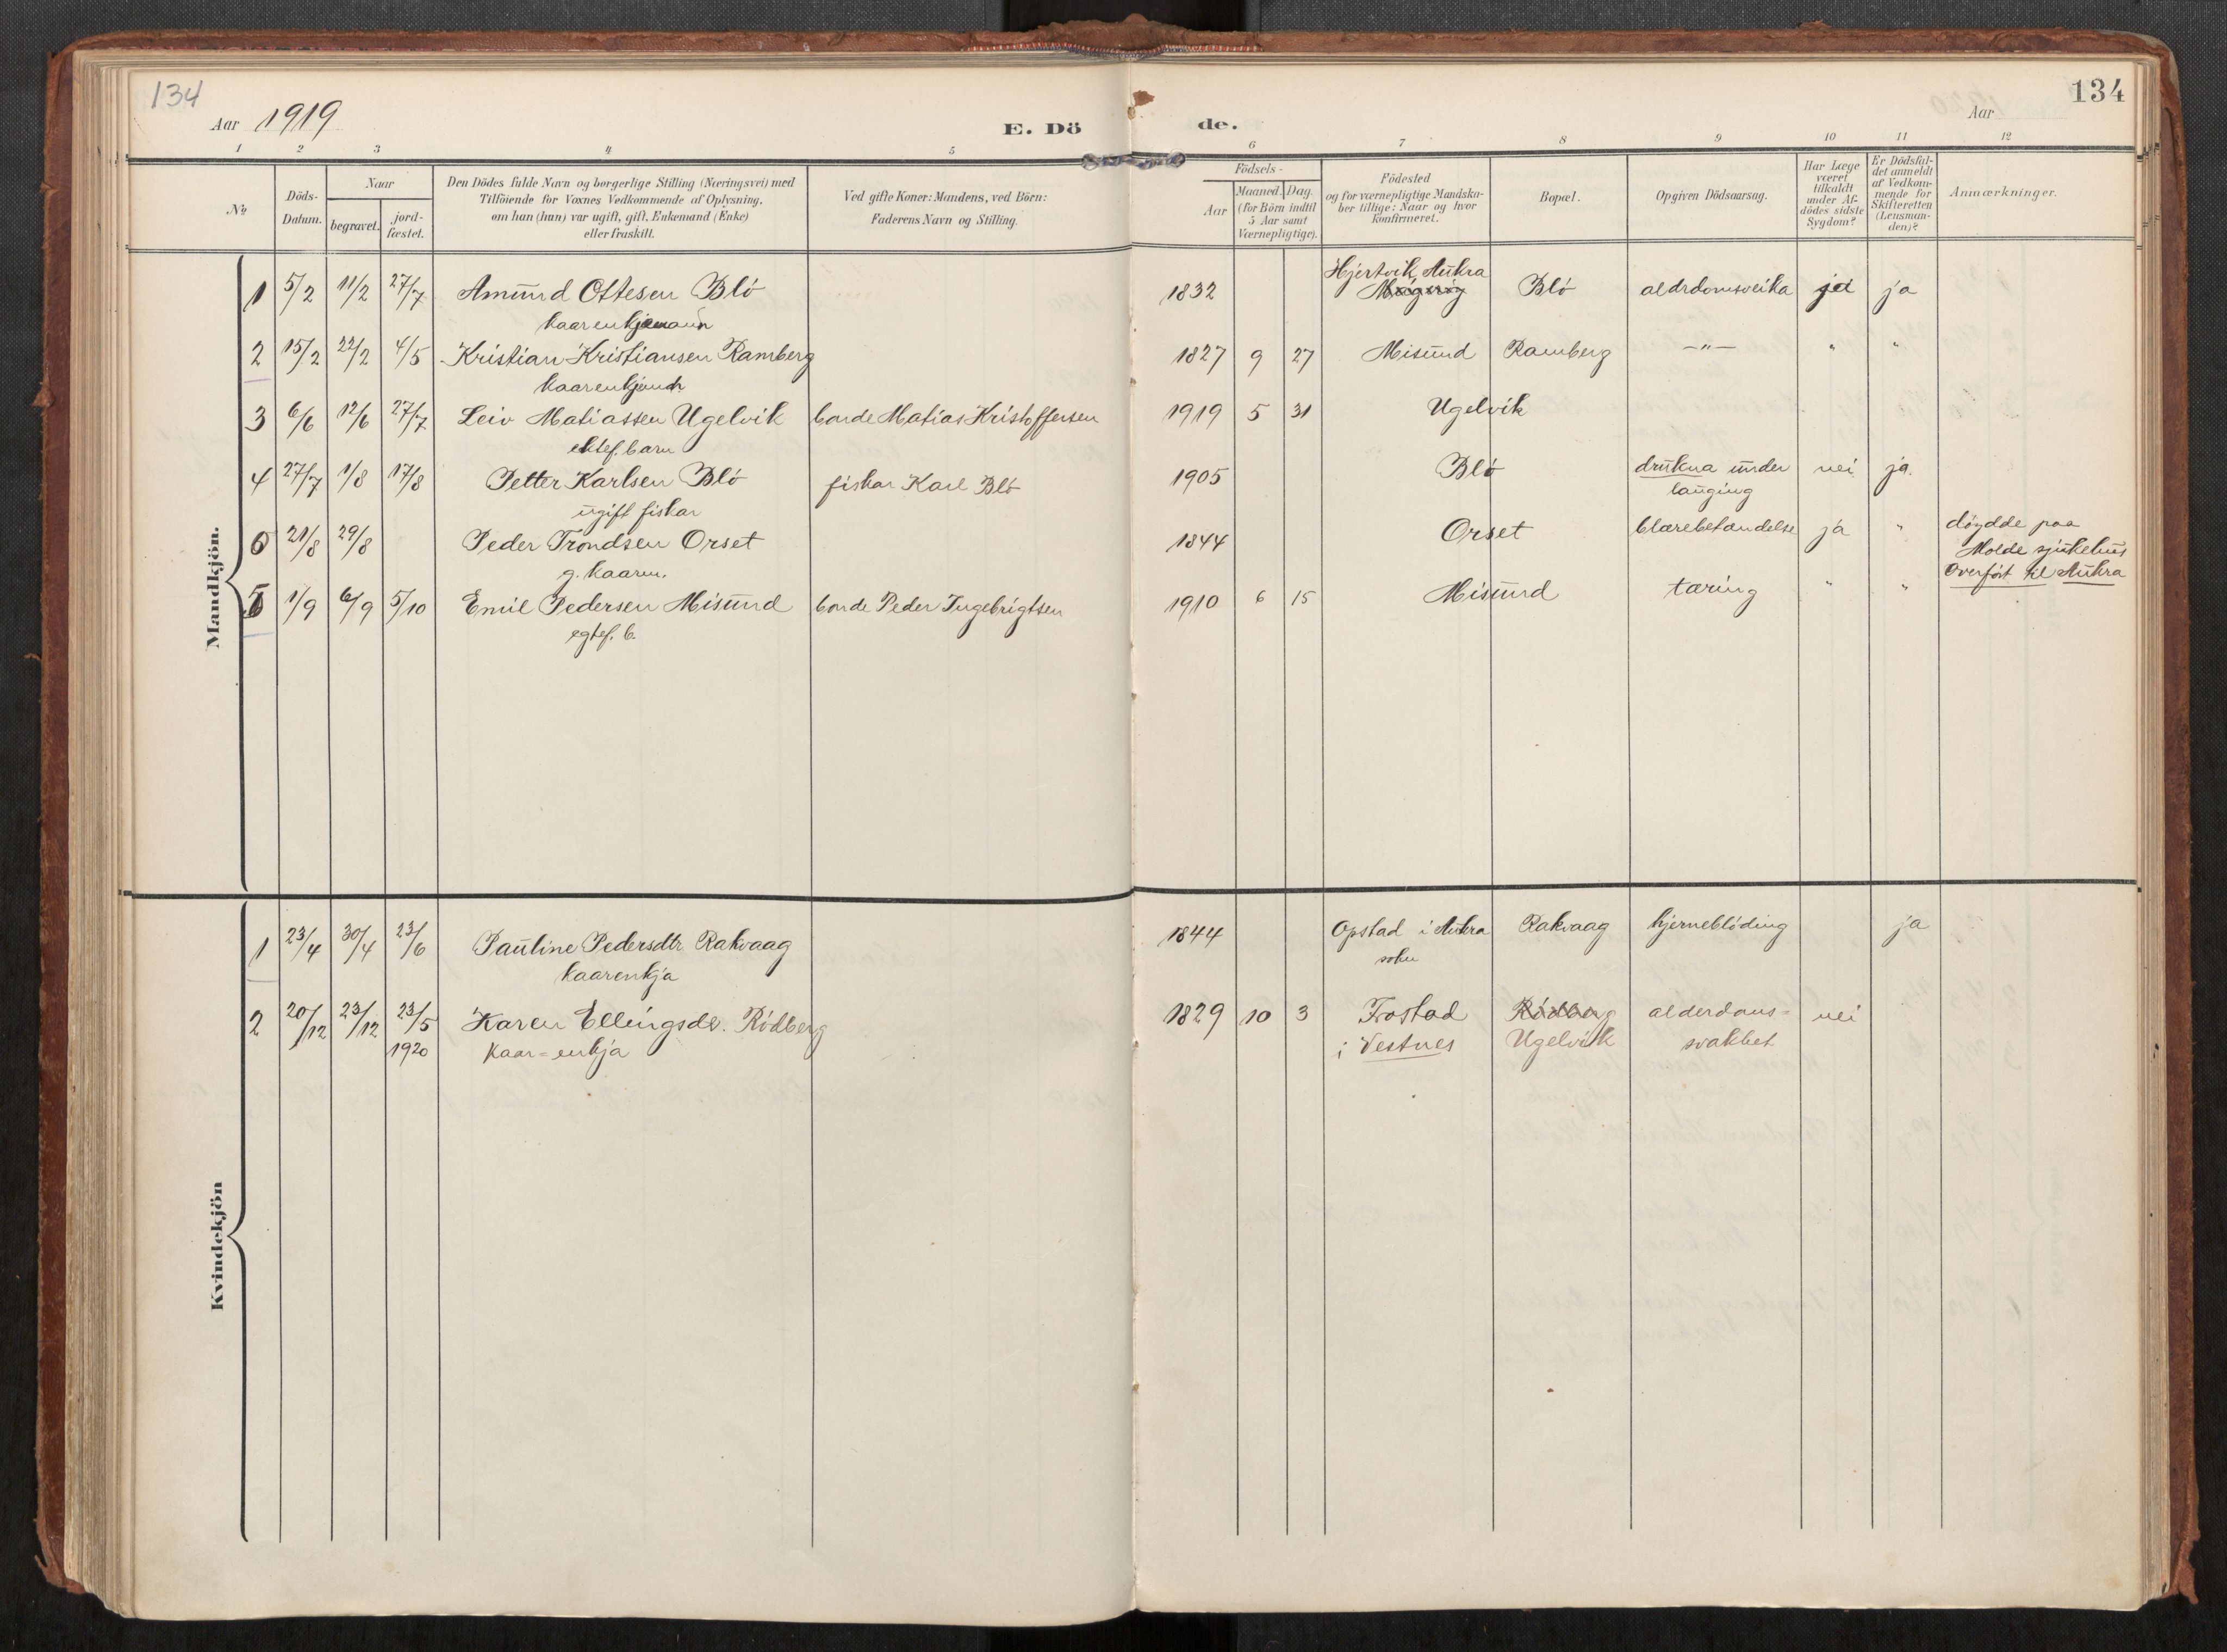 134
134
Aar 1919
E. Dö
de.
Aar
1 2 3 4 5 6 7 8 9 10 11 12
No
Döds-
Datum.
Naar
begravet.
jord-
fæstet.
Den Dödes fulde Navn og borgerlige Stilling (Næringsvei) med
Tilföiende for Voxnes Vedkommende af Oplysning,
om han (hun) var ugift, gift, Enkemand (Enke)
eller fraskilt.
Ved gifte Koner: Mandens, ved Börn:
Faderens Navn og Stilling.
Födsels-
Aar
Maaned. Dag.
(for Börn indtil
5 Aar samt
Værnepligtige).
Födested
og for værnepligtige Mandska-
ber tillige: Naar og hvor
konfirmeret.
Bopæl.
Opgiven Dödsaarsag.
Har Læge
været
tilkaldt
under Af-
dödes sidste
Sygdom?
Er Dödsfal-
det anmeldt
af Vedkom-
mende for
Skifteretten
(Lensman-
den)?
Anmærkninger.
Mandkjön.
1 5/2 11/2 27/7 Amund Ottesen Blø 1832 Hjertvik, Aukra Blø aldrdomsveika ja ja
kaarenkjemann
2 15/2 22/2 4/5 Kristian Kristiansen Ramberg 1827 9 27 Misund Ramberg —"— " "
kaarenkjem
3 6/6 12/6 27/7 Leiv Matiassen Ugelvik bonde Matias Kristoffersen 1919 5 31 Ugelvik
ektef. barn
4 27/7 1/8 17/8 Petter Karlsen Blø fiskar Karl Blø 1905 Blø drukna under nei ja.
lauging
ugift fiskar
21/8 29/8 Peder Trondsen Orset 1844 Orset blærebetændelse ja " døydde paa
Molde sjukehus
Overført til Aukra
g. kaarm.
1/9 6/9 5/10 Emil Pedersen Misund bonde Peder Ingebrigtsen 1910 6 15 Misund tæring " "
egtef. b.
Kvindekjön
1 23/4 30/4 23/6 Pauline Pedersdtr Rakvaag 1844 Opstad i Aukra Rakvaag hjerneblöding ja
sokn
kaarenkja
2 20/12 23/12 23/5 Karen Ellingsdr. Rödberg 1829 10 3 Frostad Rödberg alderdoms= nei
1920 kaar=enkja i Vestnes Ugelvik svakhet